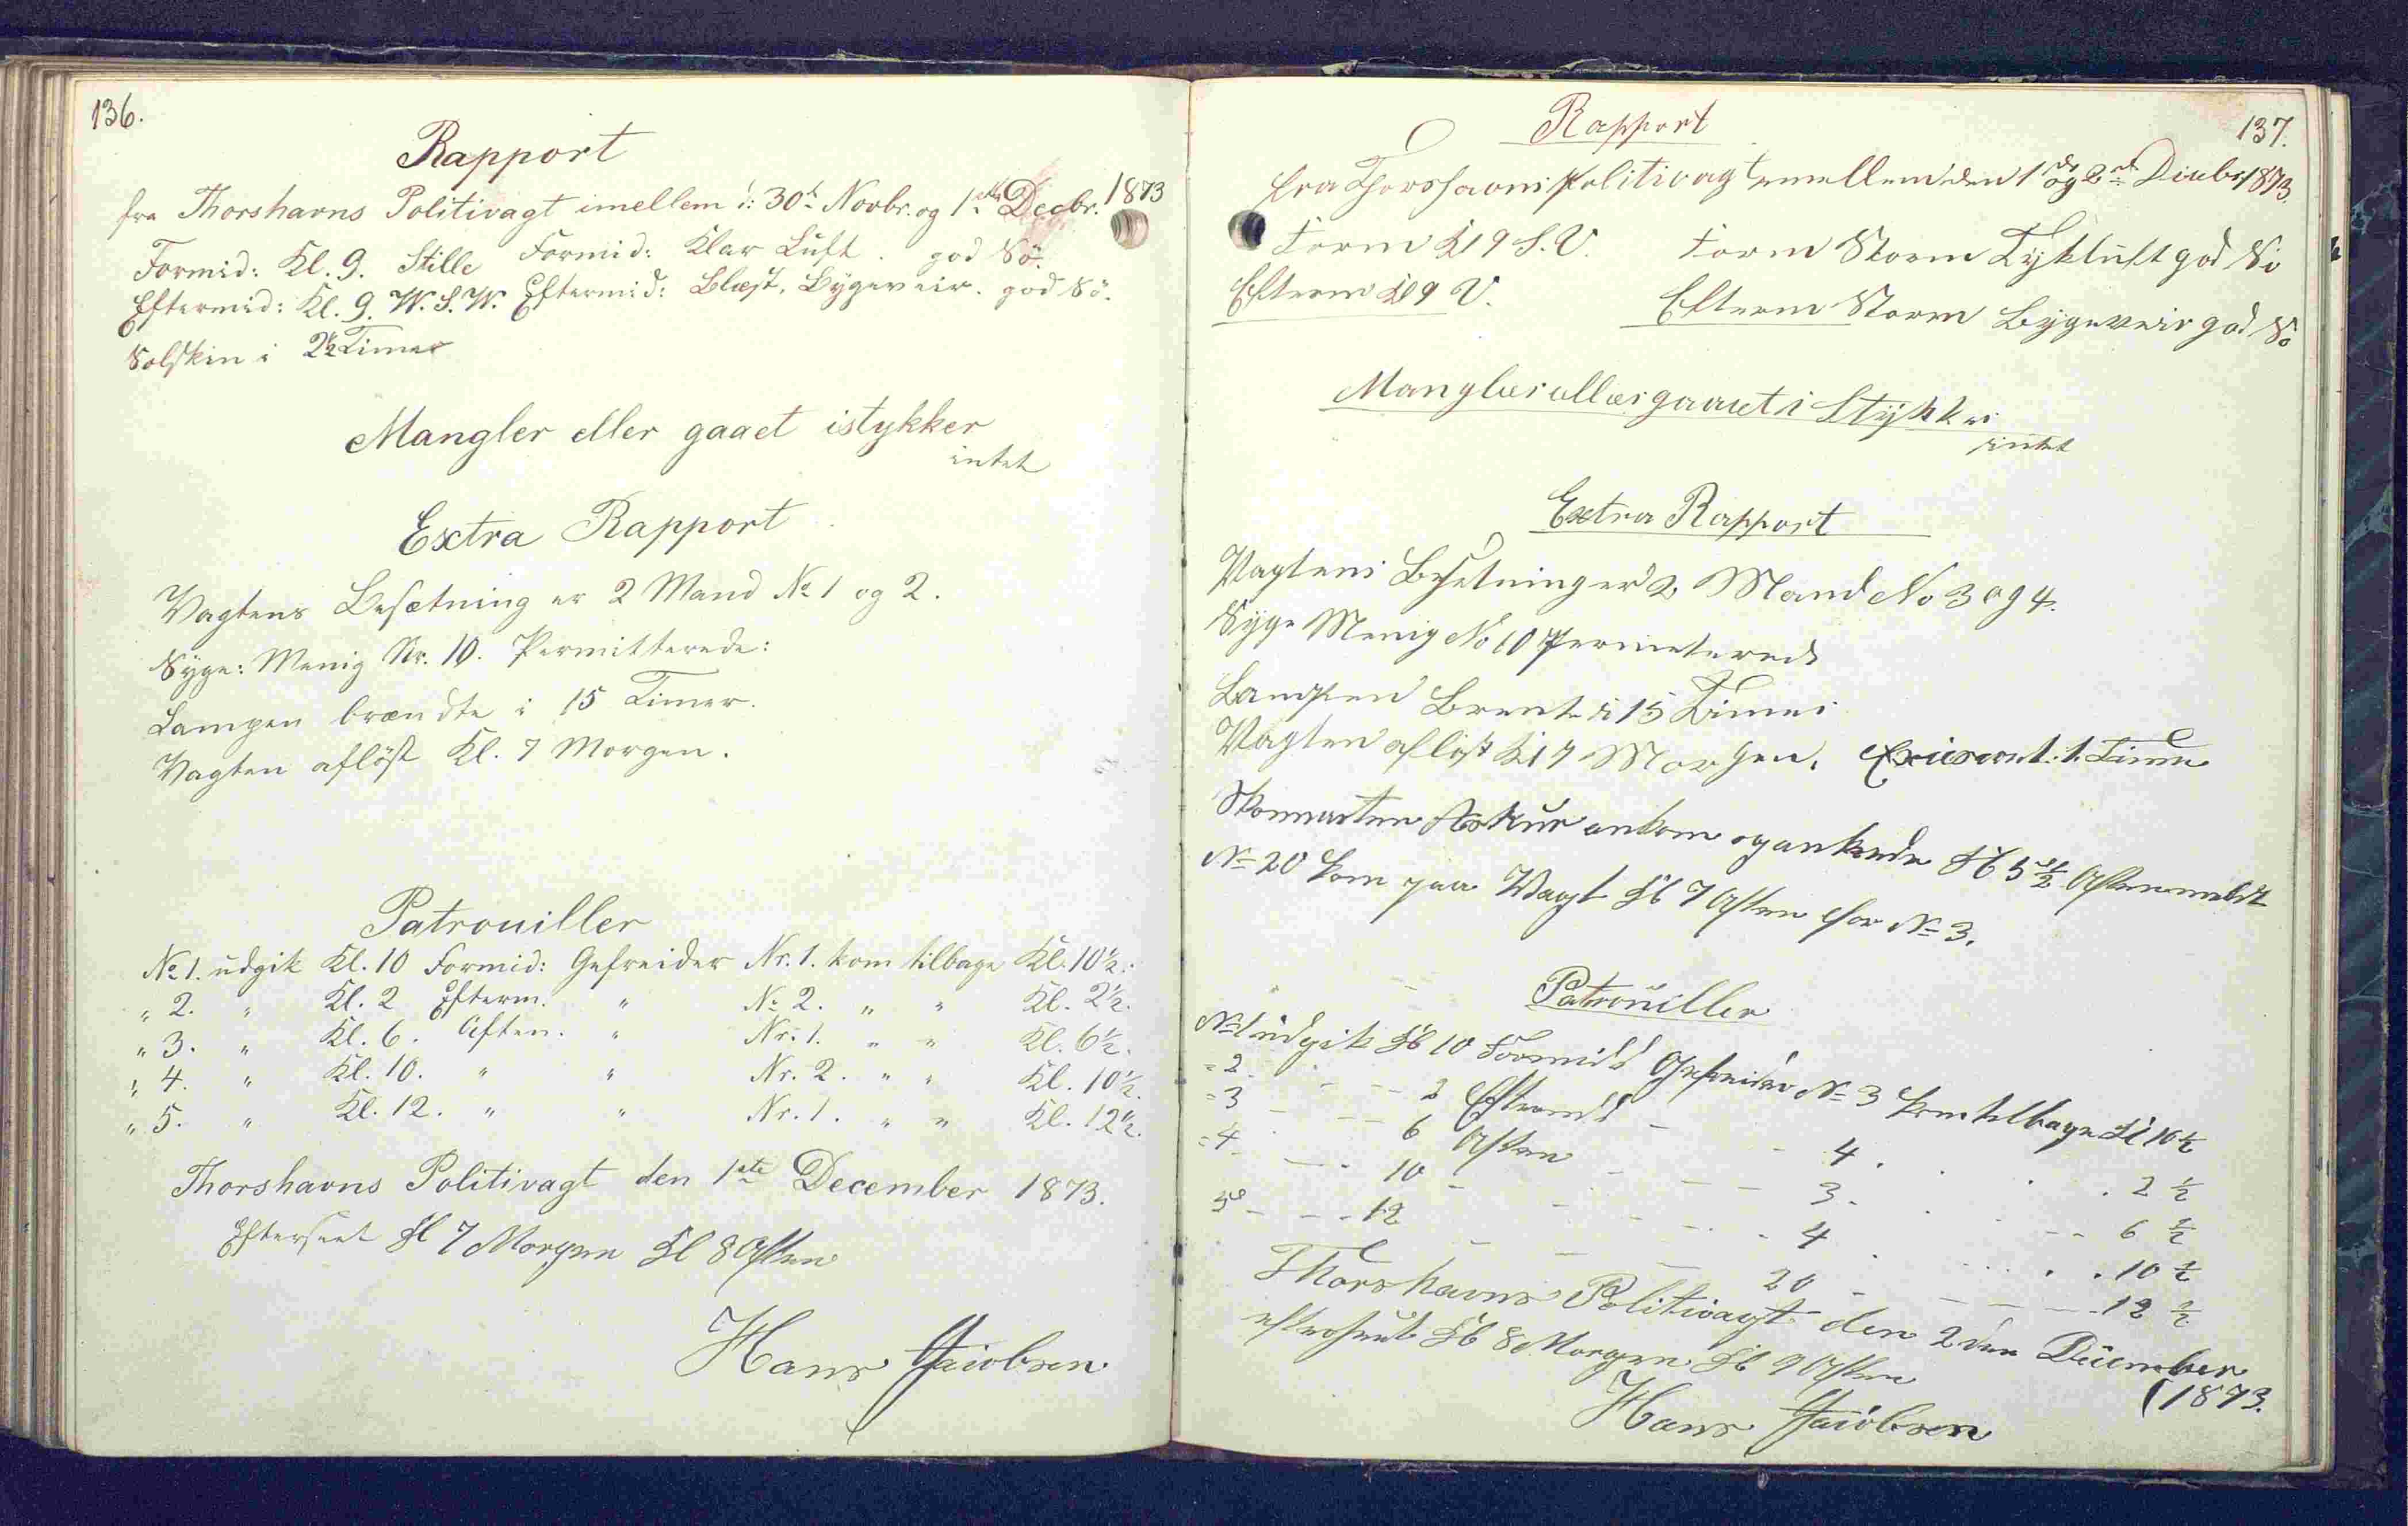 136.
Rapport
fra Thorshavns Politivagt imellem d: 30te Novbr. og 1ste Decbr. 1873
Formid: Kl. 9. Stille Formid: Klar Luft. god Sö.
Eftermid: Kl. 9. W. S. W. Eftermid: Blæst, Bygeveir. god Sö.
Solskin i 2½ Timer
Mangler eller gaaet istykker
intet
Extra Rapport
Vagtens Besætning er 2 Mand No 1 og 2.
Syge: Menig Nr. 10. Permitterede:
Lampen brændte i 15 Timer.
Vagten aflöst Kl. 7 Morgen.
Patrouiller
No 1. udgik Kl. 10 Formid: Gefreider Nr. 1. kom tilbage Kl. 10½.
" 2. " Kl. 2 Efterm. " Nr. 2. " " Kl. 2½.
" 3. " Kl. 6. Aften. " Nr. 1. " " Kl. 6½.
" 4. " Kl. 10. " " Nr. 2. " " Kl. 10½.
" 5. " Kl. 12. " " Nr. 1. " " Kl. 12½.
Thorshavns Politivagt den 1ste December 1873.
Efterseet Kl 7 Morgen Kl 8 Aften
Hans Jacobsen
137.
Rapport
fra Thorshavns Politivagt emellem den 1de og 2de Decbr 1873.
Form Kl 9 S. V. Form Storm Tykluft god Sö
Efterm Kl 9 V. Efterm Storm Bygeveir god Sö
Mangler eller gaaet i Stykker
intet
Extra Rapport
Vagtens Besetning er 2 Mand No 3 og 4.
Syge Menig No 10 Permeterede
Lampen Brente i 15 Timer
Vagten aflöst Kl 7 Morgen. 1. Time
Skonnerten ankom og ankrede Kl 5½
No 20 kom paa Wagt Kl 7 Aften for No 3.
Patrouiller
No 1 udgik Kl 10 Formidd Gefreider No 3 kom tilbage Kl 10½
" 2 - - - 2 Eftermidd - - 4 - - 2½
" 3 - - - 6 Aften - - 3 - - 6½
" 4 - - - 10 - - - 4 - - 10½
5 - - - 12 - - - 20 - - 12½
Thorshavns Politivagt den 2den December
(1873.
efterseet Kl 8 Morgen Kl 9 Aften
Hans Jacobsen